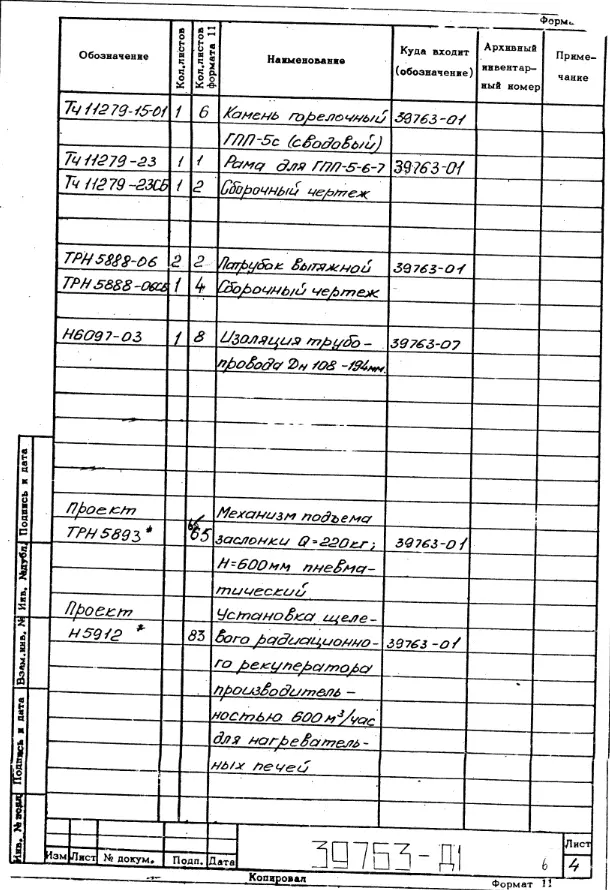 Форм
Обозначение Кол.листов Кол.листов формата 11 Наименование Куда входит (обозначение) Архивный инвентарный номер Примечание
ТЧ 11279-15-01 1 6 Камень горелочный 39763-01
ГПП-5с (сводовый)
ТЧ 11279-23 1 1 Рама для ГПП-5-6-7 39763-01
ТЧ 11279-23СБ 1 2 Сборочный чертеж
ТРН 5888-06 2 2 Патрубок вытяжной 39763-01
ТРН 5888-06СБ 1 4 Сборочный чертеж
Н6097-03 1 8 Изоляция трубо- 39763-07
провода Dн 108-194мм.
Проект Механизм подъема
ТРН 5893* 65 заслонки Q=220кг; 39763-01
H=600мм пневма-
тический
Проект Установка щеле-
Н5912 * 83 вого радиационно- 39763-01
го рекуператора
производитель-
ностью 600 м³/час
для нагреватель-
ных печей
Подпись и дата
Инв. №дубл.
Взам.инв. №
Подпись и дата
Инв. №подл
Изм Лист № докум. Подп. Дата
39763-Д1 6
Лист
4
Копировал Формат 11